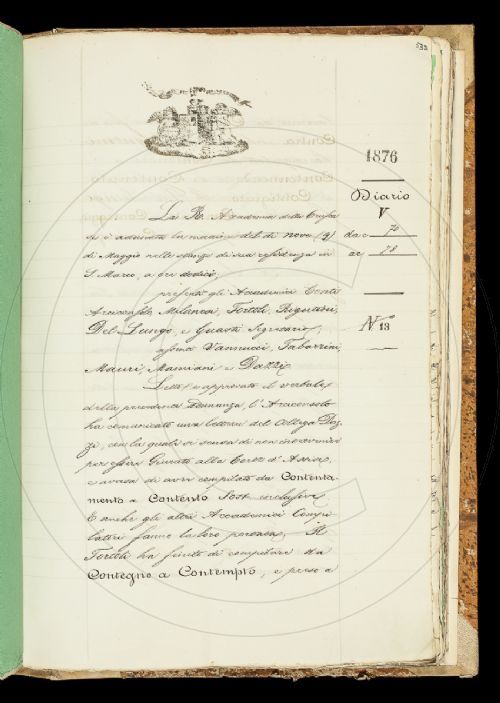 532
1876
Diario
V
da c 70
a c 78
N.° 13
La R. Accademia della Crusca
si è adunata la mattina del dì nove (9)
di Maggio nelle stanze di sua residenza in
S. Marco, a ore dodici,
presenti gli Accademici Conti
Arciconsolo, Milanesi, Tortoli, Rigutini,
Del Lungo, e Guasti Segretario;
assenti Vannucci, Tabarrini,
Mauri, Mamiani e Dazzi.
Letto e approvato il verbale
della precedente Adunanza, l'Arciconsolo
ha comunicato una lettera del Collega Daz-
zi, con la quale si scusa di non intervenire
per essere Giurato alla Corte d'Assise,
e avvisa di aver compilato da Contenta-
mento a Contento Sost. inclusive.
E anche gli altri Accademici Compi-
latori fanno la loro portata. Il
Tortoli ha finito di compilare da
Contegno a Contempto, e preso a